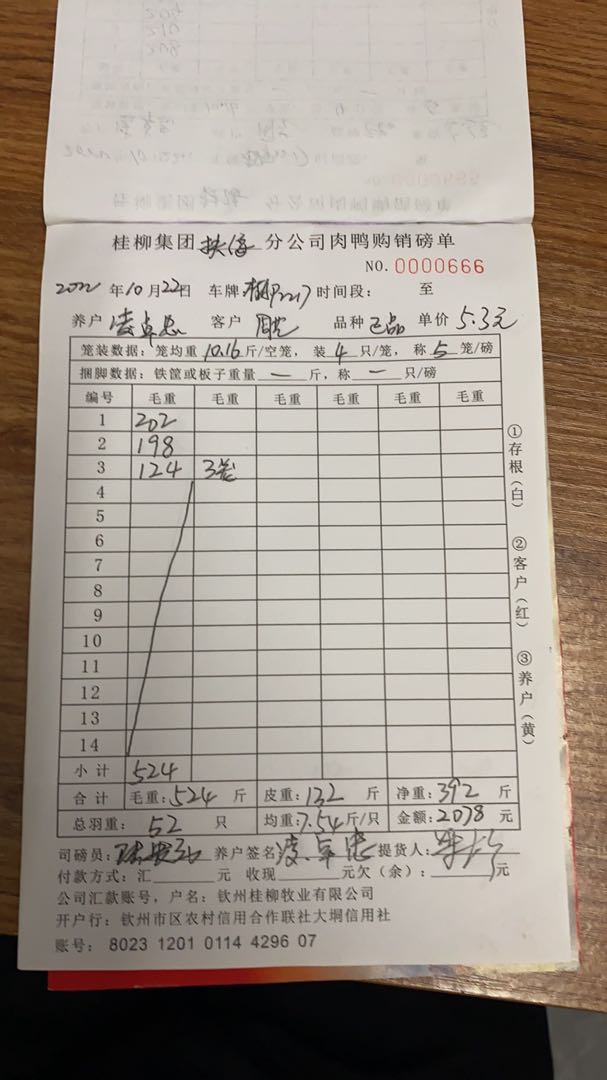 桂柳集团 分公司肉鸭购销磅单
NO.0000666
2022 年10月22日 车牌 时间段： 至
养户 凌卓忠 客户 品种 正品 单价 5.3元
笼装数据：笼均重10.16斤/空笼，装4只/笼，称5笼/磅
捆脚数据：铁筐或板子重量一斤，称一只/磅
编号 毛重 毛重 毛重 毛重 毛重 毛重
1 202
2 198
3 124 3笼
4
5
6
7
8
9
10
11
12
13
14
小计 524
合计 毛重：524斤 皮重：132斤 净重：392斤
总羽重： 52 只 均重：7.54斤/只 金额：2078元
司磅员： 养户签名 凌卓忠 提货人：
付款方式：汇 元 收现 元欠（余）： 元
公司汇款账号，户名：钦州桂柳牧业有限公司
开户行：钦州市区农村信用合作联社大垌信用社
账号： 8023 1201 0114 4296 07
①存根（白）
②客户（红）
③养户（黄）